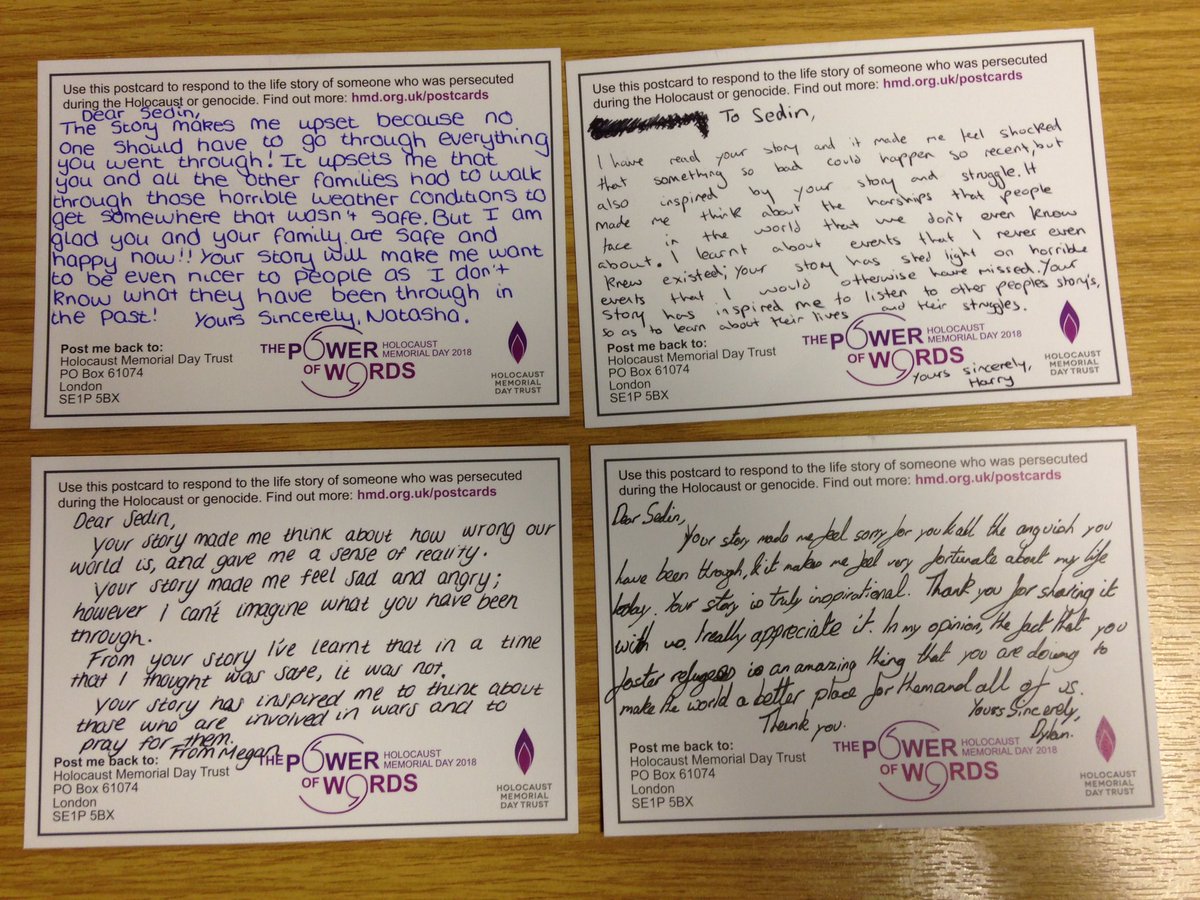 Use this postcard to respond to the life story of someone who was persecuted
during the Holocaust or genocide. Find out more: hmd.org.uk/postcards
Dear Sedin,
The Story makes me upset because no
one should have to go through everything
you went through! It upsets me that
you and all the other families had to walk
through those horrible weather conditions to
get somewhere that wasn't safe. But I am
glad you and your family are safe and
happy now!! Your Story will make me want
to be even nicer to people as I don't
know what they have been through in
the Past! Yours Sincerely, Natasha.
Post me back to:
Holocaust Memorial Day Trust
PO Box 61074
London
SE1P 5BX
THE POWER OF WORDS
HOLOCAUST
MEMORIAL DAY 2018
HOLOCAUST
MEMORIAL
DAY TRUST
Use this postcard to respond to the life story of someone who was persecuted
during the Holocaust or genocide. Find out more: hmd.org.uk/postcards
To Sedin,
I have read your story and it made me feel shocked
that something so bad could happen so recent, but
also inspired by your story and struggle. It
made me think about the harships that people
face in the world that we don't even know
about. I learnt about events that I never even
knew existed; your story has shed light on horrible
events that I would otherwise have missed. Your
story has inspired me to listen to other peoples story's,
so as to learn about their lives and their struggles.
Yours sincerely,
Harry
Post me back to:
Holocaust Memorial Day Trust
PO Box 61074
London
SE1P 5BX
THE POWER OF WORDS
HOLOCAUST
MEMORIAL DAY 2018
HOLOCAUST
MEMORIAL
DAY TRUST
Use this postcard to respond to the life story of someone who was persecuted
during the Holocaust or genocide. Find out more: hmd.org.uk/postcards
Dear Sedin,
Your story made me think about how wrong our
world is, and gave me a sense of reality.
Your story made me feel sad and angry;
however I can't imagine what you have been
through.
From your story I've learnt that in a time
that I thought was safe, it was not.
Your story has inspired me to think about
those who are involved in wars and to
pray for them.
From Megan
Post me back to:
Holocaust Memorial Day Trust
PO Box 61074
London
SE1P 5BX
THE POWER OF WORDS
HOLOCAUST
MEMORIAL DAY 2018
HOLOCAUST
MEMORIAL
DAY TRUST
Use this postcard to respond to the life story of someone who was persecuted
during the Holocaust or genocide. Find out more: hmd.org.uk/postcards
Dear Sedin,
Your story made me feel sorry for you & all the anguish you
have been through, & it makes me feel very fortunate about my life
today. Your story is truly inspirational. Thank you for sharing it
with us. I really appreciate it. In my opinion, the fact that you
foster refugees is an amazing thing that you are doing to
make the world a better place for them and all of us.
Thank you.
Yours Sincerely,
Dylan.
Post me back to:
Holocaust Memorial Day Trust
PO Box 61074
London
SE1P 5BX
THE POWER OF WORDS
HOLOCAUST
MEMORIAL DAY 2018
HOLOCAUST
MEMORIAL
DAY TRUST